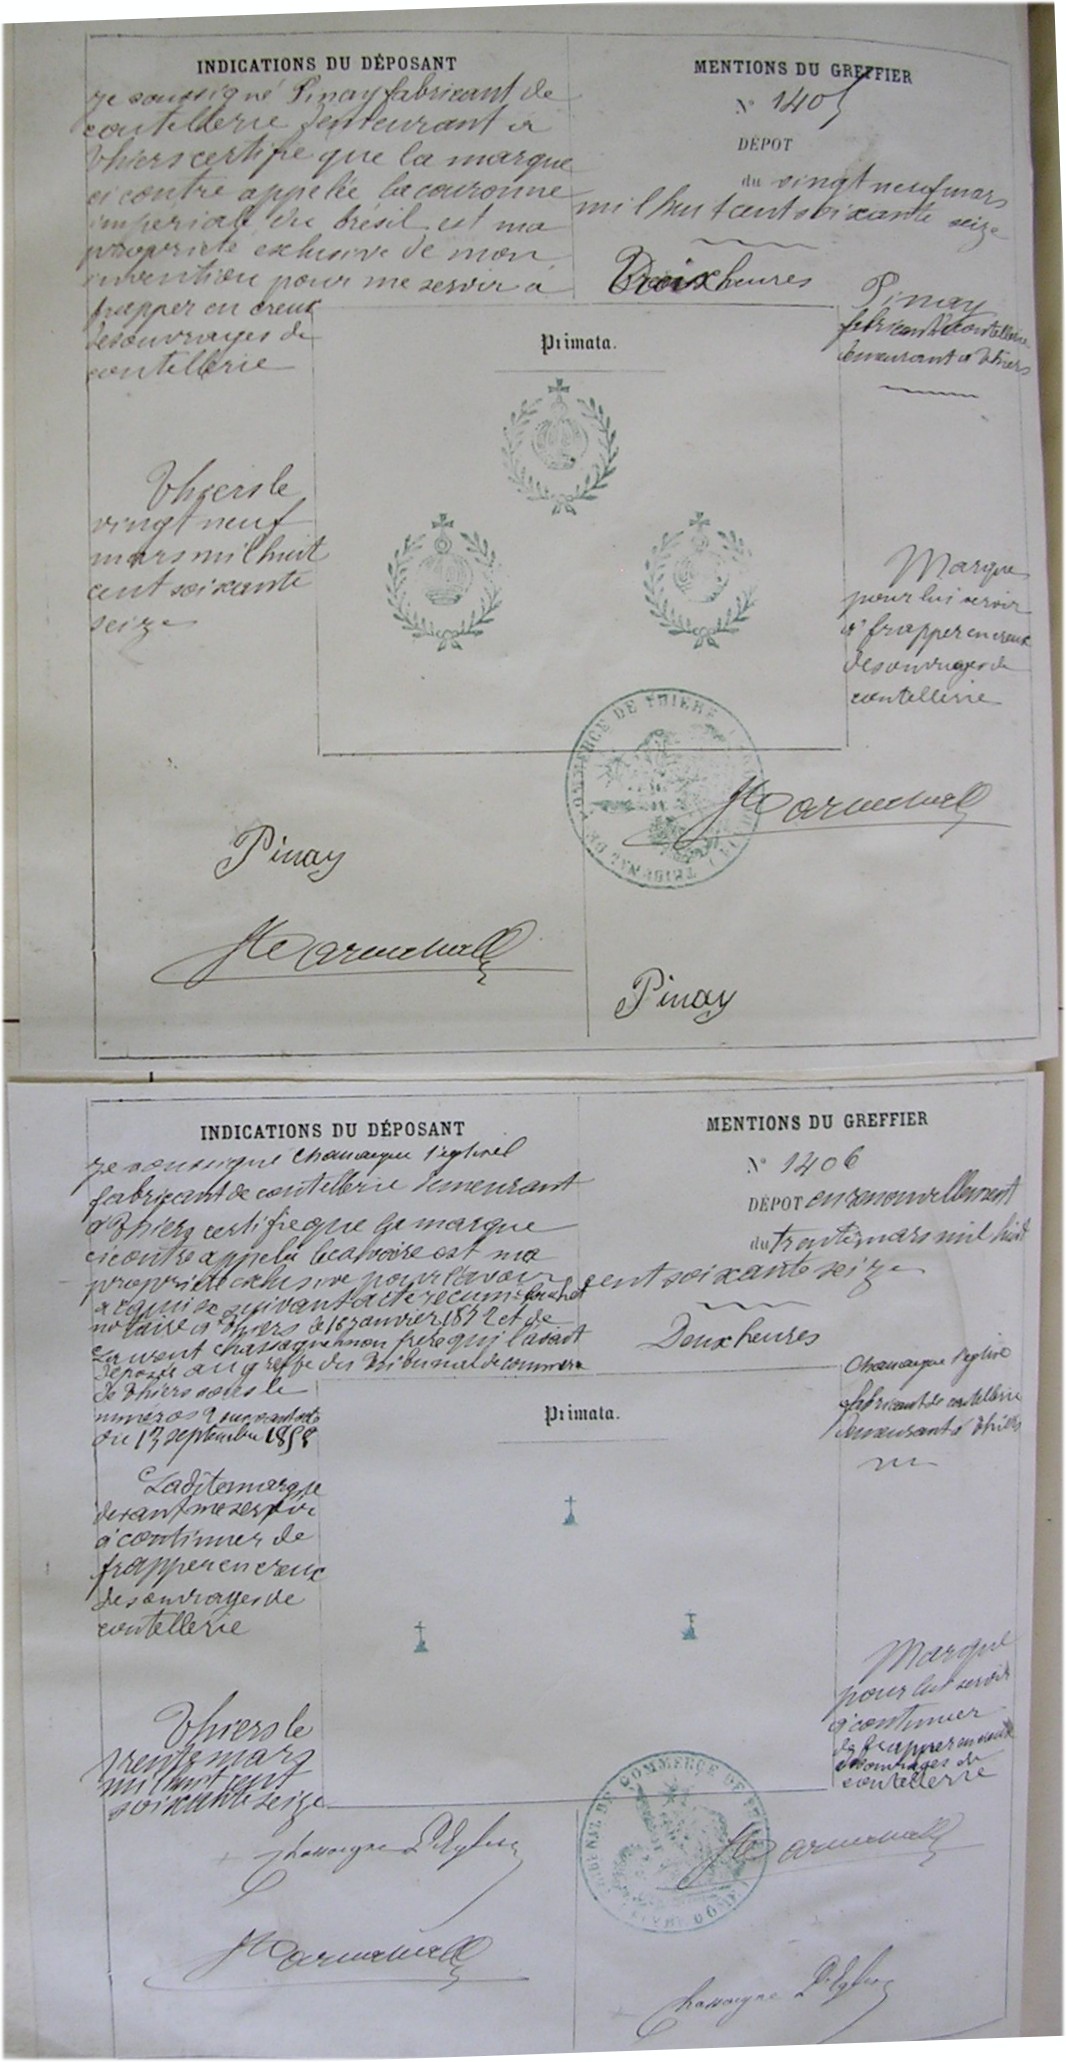 INDICATIONS DU DÉPOSANT
Je soussigné Pinay fabricant de
coutellerie demeurant à
Thiers certifie que la marque
ci contre appelée la couronne
imperiale du brésil est ma
propriété exclusive de mon
invention pour me servir à
frapper en creux
des ouvrages de
coutellerie
Thiers le
vingt neuf
mars mil huit
cent soixante
seize
Pinay
MENTIONS DU GREFFIER
N° 1405
DÉPOT
du vingt neuf mars
mil huit cent soixante seize
Trois heures
Pinay
fabricant de coutellerie
demeurant à Thiers
Primata.
Marque
pour lui servir
à frapper en creux
des ouvrages de
coutellerie
TRIBUNAL DE COMMERCE DE THIERS
Pinay
INDICATIONS DU DÉPOSANT
Je soussigné Chassaigne
fabricant de coutellerie demeurant
à Thiers certifie que la marque
ci contre appelée le calvaire est ma
propriété exclusive pour l'avoir
acquise suivant acte recu
notaire à Thiers le 16 janvier 1872 et de
Laurent Chassaigne mon frere qui l'avait
déposée au greffe du tribunal de commerce
de Thiers sous le
numéro
du 13 septembre 1858
Ladite marque
devant me servir
à continuer de
frapper en creux
des ouvrages de
coutellerie
Thiers le
trente mars
mil huit cent
soixante seize
Chassaigne
MENTIONS DU GREFFIER
N° 1406
DÉPOT en renouvellement
du trente mars mil huit
cent soixante seize
Deux heures
Chassaigne
fabricant de coutellerie
demeurant à Thiers
Primata.
Marque
pour lui servir
à continuer
de frapper en creux
des ouvrages de
coutellerie
TRIBUNAL DE COMMERCE DE THIERS (PUY DE DÔME)
Chassaigne